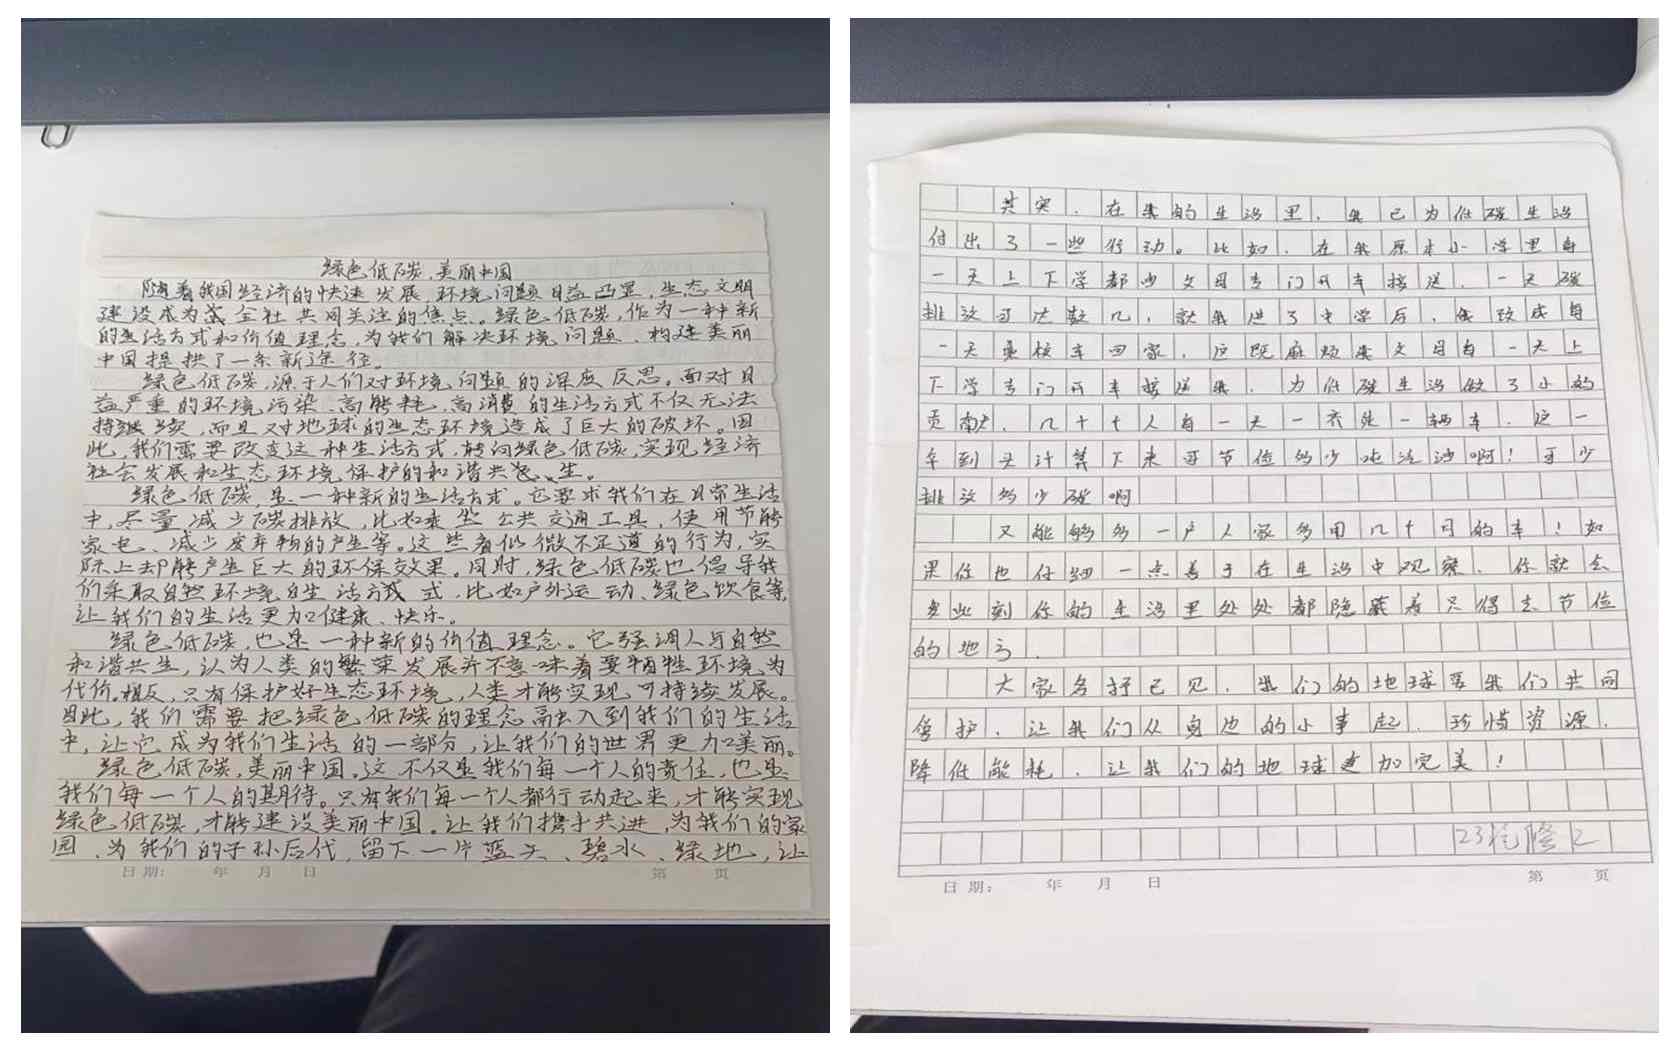 绿色低碳,美丽中国
随着我国经济的快速发展,环境问题日益凸显,生态文明
建设成为全社共同关注的焦点。绿色低碳,作为一种新
的生活方式和价值理念,为我们解决环境问题、构建美丽
中国提拱了一条新途径。
绿色低碳,源于人们对环境问题的深度反思。面对日
益严重的环境污染、高能耗、高消费的生活方式不仅无法
持续,而且对地球的生态环境造成了巨大的破坏。因
此,我们需要改变这种生活方式,转向绿色低碳,实现经济
社会发展和生态环境保护的和谐共生。
绿色低碳,是一种新的生活方式。它要求我们在日常生活
中,尽量减少碳排放,比如乘坐公共交通工具,使用节能
家电、减少废弃物的产生等。这些看似微不足道的行为,实
际上却能产生巨大的环保效果。同时,绿色低碳也倡导我
们采取自然环境生活式,比如户外运动、绿色饮食等,
让我们的生活更加健康、快乐。
绿色低碳,也是一种新的价值理念。它强调人与自然
和谐共生,认为人类的繁荣发展并不意味着要牺牲环境为
代价。相反,只有保护好生态环境,人类才能实现可持续发展。
因此,我们需要把绿色低碳的理念融入到我们的生活
中,让它成为我们生活的一部分,让我们的世界更加美丽。
绿色低碳,美丽中国。这不仅是我们每一个人的责任,也是
我们每一个人的期待。只有我们每一个人都行动起来,才能实现
绿色低碳,才能建设美丽中国。让我们携手共进,为我们的家
园、为我们的子孙后代,留下一片蓝天、碧水、绿地,让
日期: 年 月 日 第 页
其实,在我的生活里,我已为低碳生活
付出了一些行动。比如,在我原本小学里每
一天上下学都少父母专门开车接送,一天碳
排放可达数几,就我进了中学后,我改成每
一天乘校车回家,这既麻烦我父母每一天上
下学专门开车接送我,为低碳生活做了小的
贡献,几十七人每一天一齐坐一辆车,这一
年到头计算下来可节俭多少吨汽油啊!可少
排放多少碳啊
又能够多一户人家多用几十月的车!如
果你也仔细一点善于在生活中观察,你就会
发此刻你的生活里处处都隐藏着只得去节俭
的地方.
大家各抒己见,我们的地球要我们共同
爱护,让我们从身边的小事起,珍惜资源,
降低能耗,让我们的地球更加完美!
日期: 年 月 日 第 页